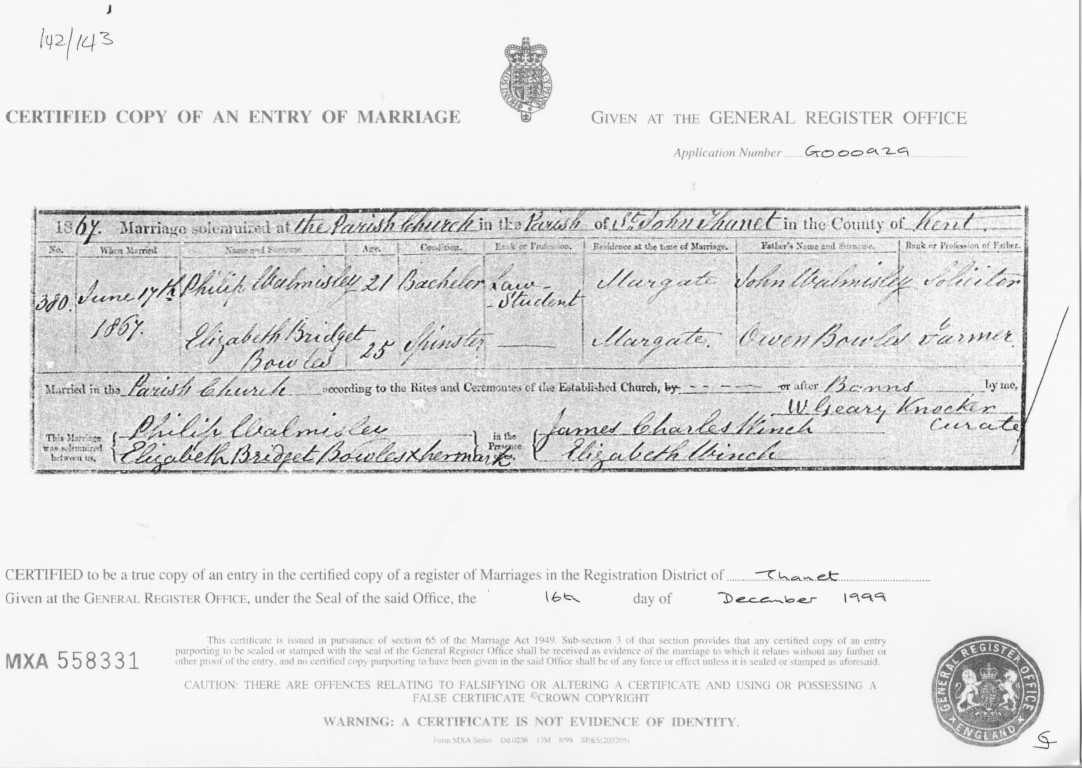 142/143
CERTIFIED COPY OF AN ENTRY OF MARRIAGE
GIVEN AT THE GENERAL REGISTER OFFICE
Application Number G000929
1867. Marriage solemnized at the Parish Church in the Parish of St John Thanet in the County of Kent.
No. When Married Name and Surname Age. Condition. Rank or Profession. Residence at the time of Marriage. Father's Name and Surname. Rank or Profession of Father.
380. June 17th Philip Walmisley 21 Bachelor Law- Margate John Walmisley Solicitor
-Student
1867. Elizabeth Bridget 25 Spinster —— Margate. Owen Bowles Farmer
Bowles
Married in the Parish Church according to the Rites and Ceremonies of the Established Church, by - - - - - or after Banns by me,
W Geary Knocker
Curate
This Marriage was solemnized between us, Philip Walmisley in the Presence of us, James Charles Winch
Elizabeth Bridget Bowles x her mark Elizabeth Winch
CERTIFIED to be a true copy of an entry in the certified copy of a register of Marriages in the Registration District of Thanet
Given at the GENERAL REGISTER OFFICE, under the Seal of the said Office, the 16th day of December 1999
This certificate is issued in pursuance of section 65 of the Marriage Act 1949. Sub-section 3 of that section provides that any certified copy of an entry
purporting to be sealed or stamped with the seal of the General Register Office shall be received as evidence of the marriage to which it relates without any further or
other proof of the entry, and no certified copy purporting to have been given in the said Office shall be of any force or effect unless it is sealed or stamped as aforesaid.
MXA 558331
CAUTION: THERE ARE OFFENCES RELATING TO FALSIFYING OR ALTERING A CERTIFICATE AND USING OR POSSESSING A
FALSE CERTIFICATE ©CROWN COPYRIGHT
WARNING: A CERTIFICATE IS NOT EVIDENCE OF IDENTITY.
Form MXA Series Dd 0236 13M 8/98 SP&S(205209)
GENERAL REGISTER OFFICE
ENGLAND